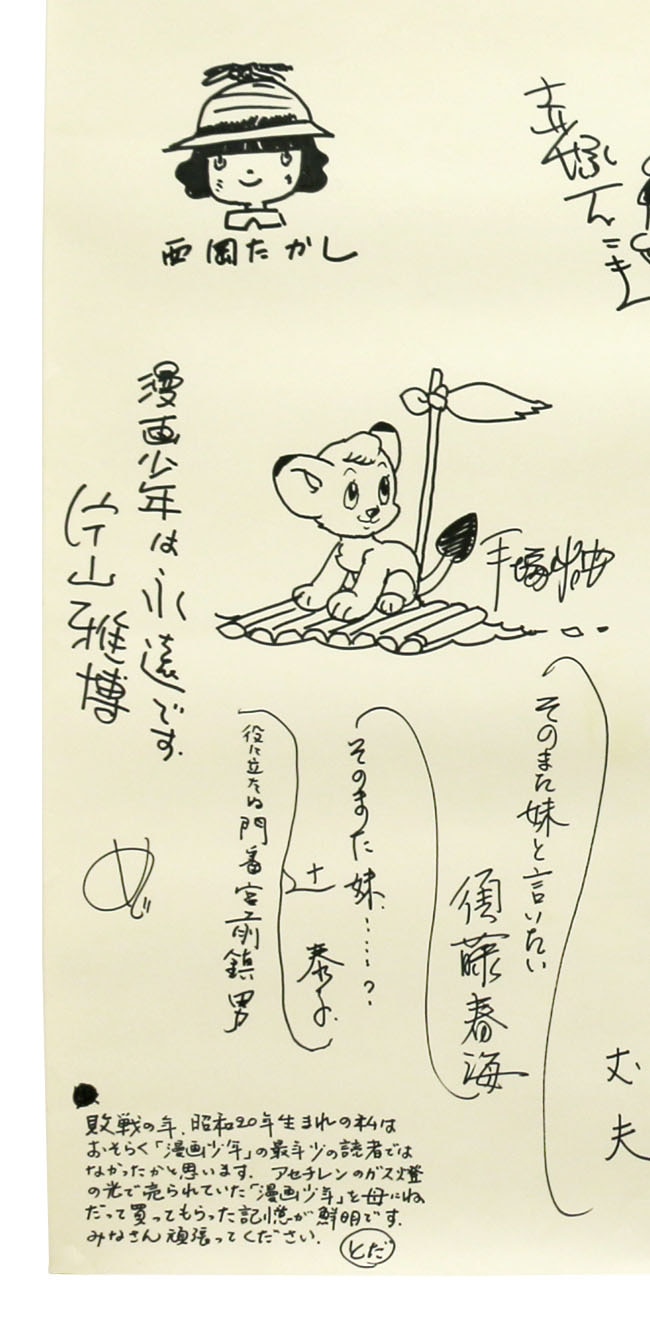 西岡たかし
手塚治虫
漫画少年は永遠です.
片山雅博
そのまた妹と言いたい
須藤春海
そのまた妹……?
辻 泰子
役に立たぬ門番宮前鎮男
む夫
敗戦の年、昭和20年生まれの私は
おそらく「漫画少年」の最年少の読者では
なかったかと思います. アセチレンのガス燈
の光で売られていた「漫画少年」を母にね
だって買ってもらった記憶が鮮明です.
みなさん頑張ってください.
とだ